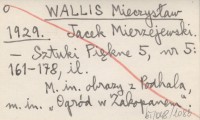 WALLIS Mieczysław
1929. Jacek Mierzejewski.
— Sztuki Piękne 5, nr 5:
161-178, il.
M. in. obrazy z Podhala,
m. in. „Ogród w Zakopanem".